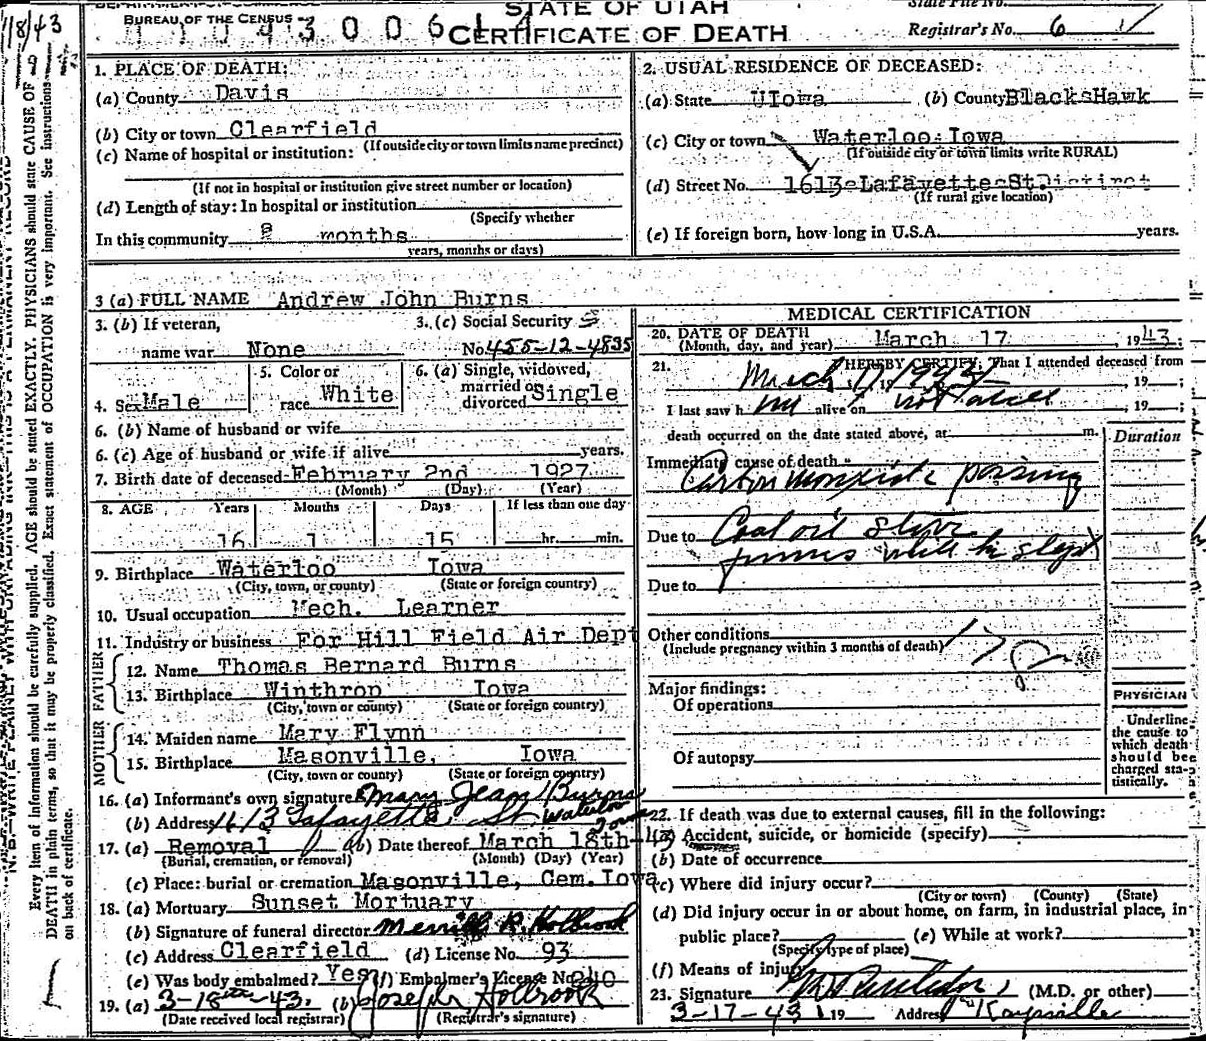 STATE OF UTAH
BUREAU OF THE CENSUS
CERTIFICATE OF DEATH
State File No.
Registrar's No. 6
18/43
Every item of information should be carefully supplied. AGE should be stated EXACTLY. PHYSICIANS should state CAUSE OF
DEATH in plain terms, so that it may be properly classified. Exact statement of OCCUPATION is very important. See instructions
on back of certificate.
1. PLACE OF DEATH:
(a) County Davis
(b) City or town Clearfield
(If outside city or town limits name precinct)
(c) Name of hospital or institution:
(If not in hospital or institution give street number or location)
(d) Length of stay: In hospital or institution
(Specify whether
In this community months
years, months or days)
2. USUAL RESIDENCE OF DECEASED:
(a) State UIowa (b) County BlacksHawk
(c) City or town Waterloo Iowa
(If outside city or town limits write RURAL)
(d) Street No. 1613 Lafayette St.
(If rural give location)
(e) If foreign born, how long in U.S.A. years.
3 (a) FULL NAME Andrew John Burns
3. (b) If veteran,
name war None
3. (c) Social Security
No. 455-12-4835
4. Sex Male
5. Color or
race White
6. (a) Single, widowed,
married or
divorced Single
6. (b) Name of husband or wife
6. (c) Age of husband or wife if alive years.
7. Birth date of deceased February 2nd 1927
(Month) (Day) (Year)
8. AGE Years Months Days If less than one day
16 1 15 hr. min.
9. Birthplace Waterloo Iowa
(City, town, or county) (State or foreign country)
10. Usual occupation Mech. Learner
11. Industry or business For Hill Field Air Dept
FATHER
12. Name Thomas Bernard Burns
13. Birthplace Winthrop Iowa
(City, town or county) (State or foreign country)
MOTHER
14. Maiden name Mary Flynn
15. Birthplace Masonville, Iowa
(City, town or county) (State or foreign country)
16. (a) Informant's own signature Mary Jean Burns
(b) Address 1613 Lafayette St Waterloo Iowa
17. (a) Removal (b) Date thereof March 18th-43
(Burial, cremation, or removal) (Month) (Day) (Year)
(c) Place: burial or cremation Masonville, Cem. Iowa
18. (a) Mortuary Sunset Mortuary
(b) Signature of funeral director Merrill R. Holbrook
(c) Address Clearfield (d) License No. 93
(e) Was body embalmed? Yes (f) Embalmer's License No. 240
19. (a) 3-18th-43. (b) Joseph Holbrook
(Date received local registrar) (Registrar's signature)
MEDICAL CERTIFICATION
20. DATE OF DEATH March 17, 1943;
(Month, day, and year)
21. I HEREBY CERTIFY, That I attended deceased from
March 17 1943, 19 ;
I last saw him alive on not at all, 19 ;
death occurred on the date stated above, at m.
Duration
Immediate cause of death
Carbon monoxide poisoning
Due to Coal oil stove
fumes while he slept
Due to
Other conditions
(Include pregnancy within 3 months of death)
Major findings:
Of operations
Of autopsy
PHYSICIAN
Underline
the cause to
which death
should be
charged sta-
tistically.
22. If death was due to external causes, fill in the following:
(a) Accident, suicide, or homicide (specify)
(b) Date of occurrence
(c) Where did injury occur?
(City or town) (County) (State)
(d) Did injury occur in or about home, on farm, in industrial place, in
public place? (e) While at work?
(Specify type of place)
(f) Means of injury
23. Signature (M.D. or other)
3-17-43 19 Address Kaysville